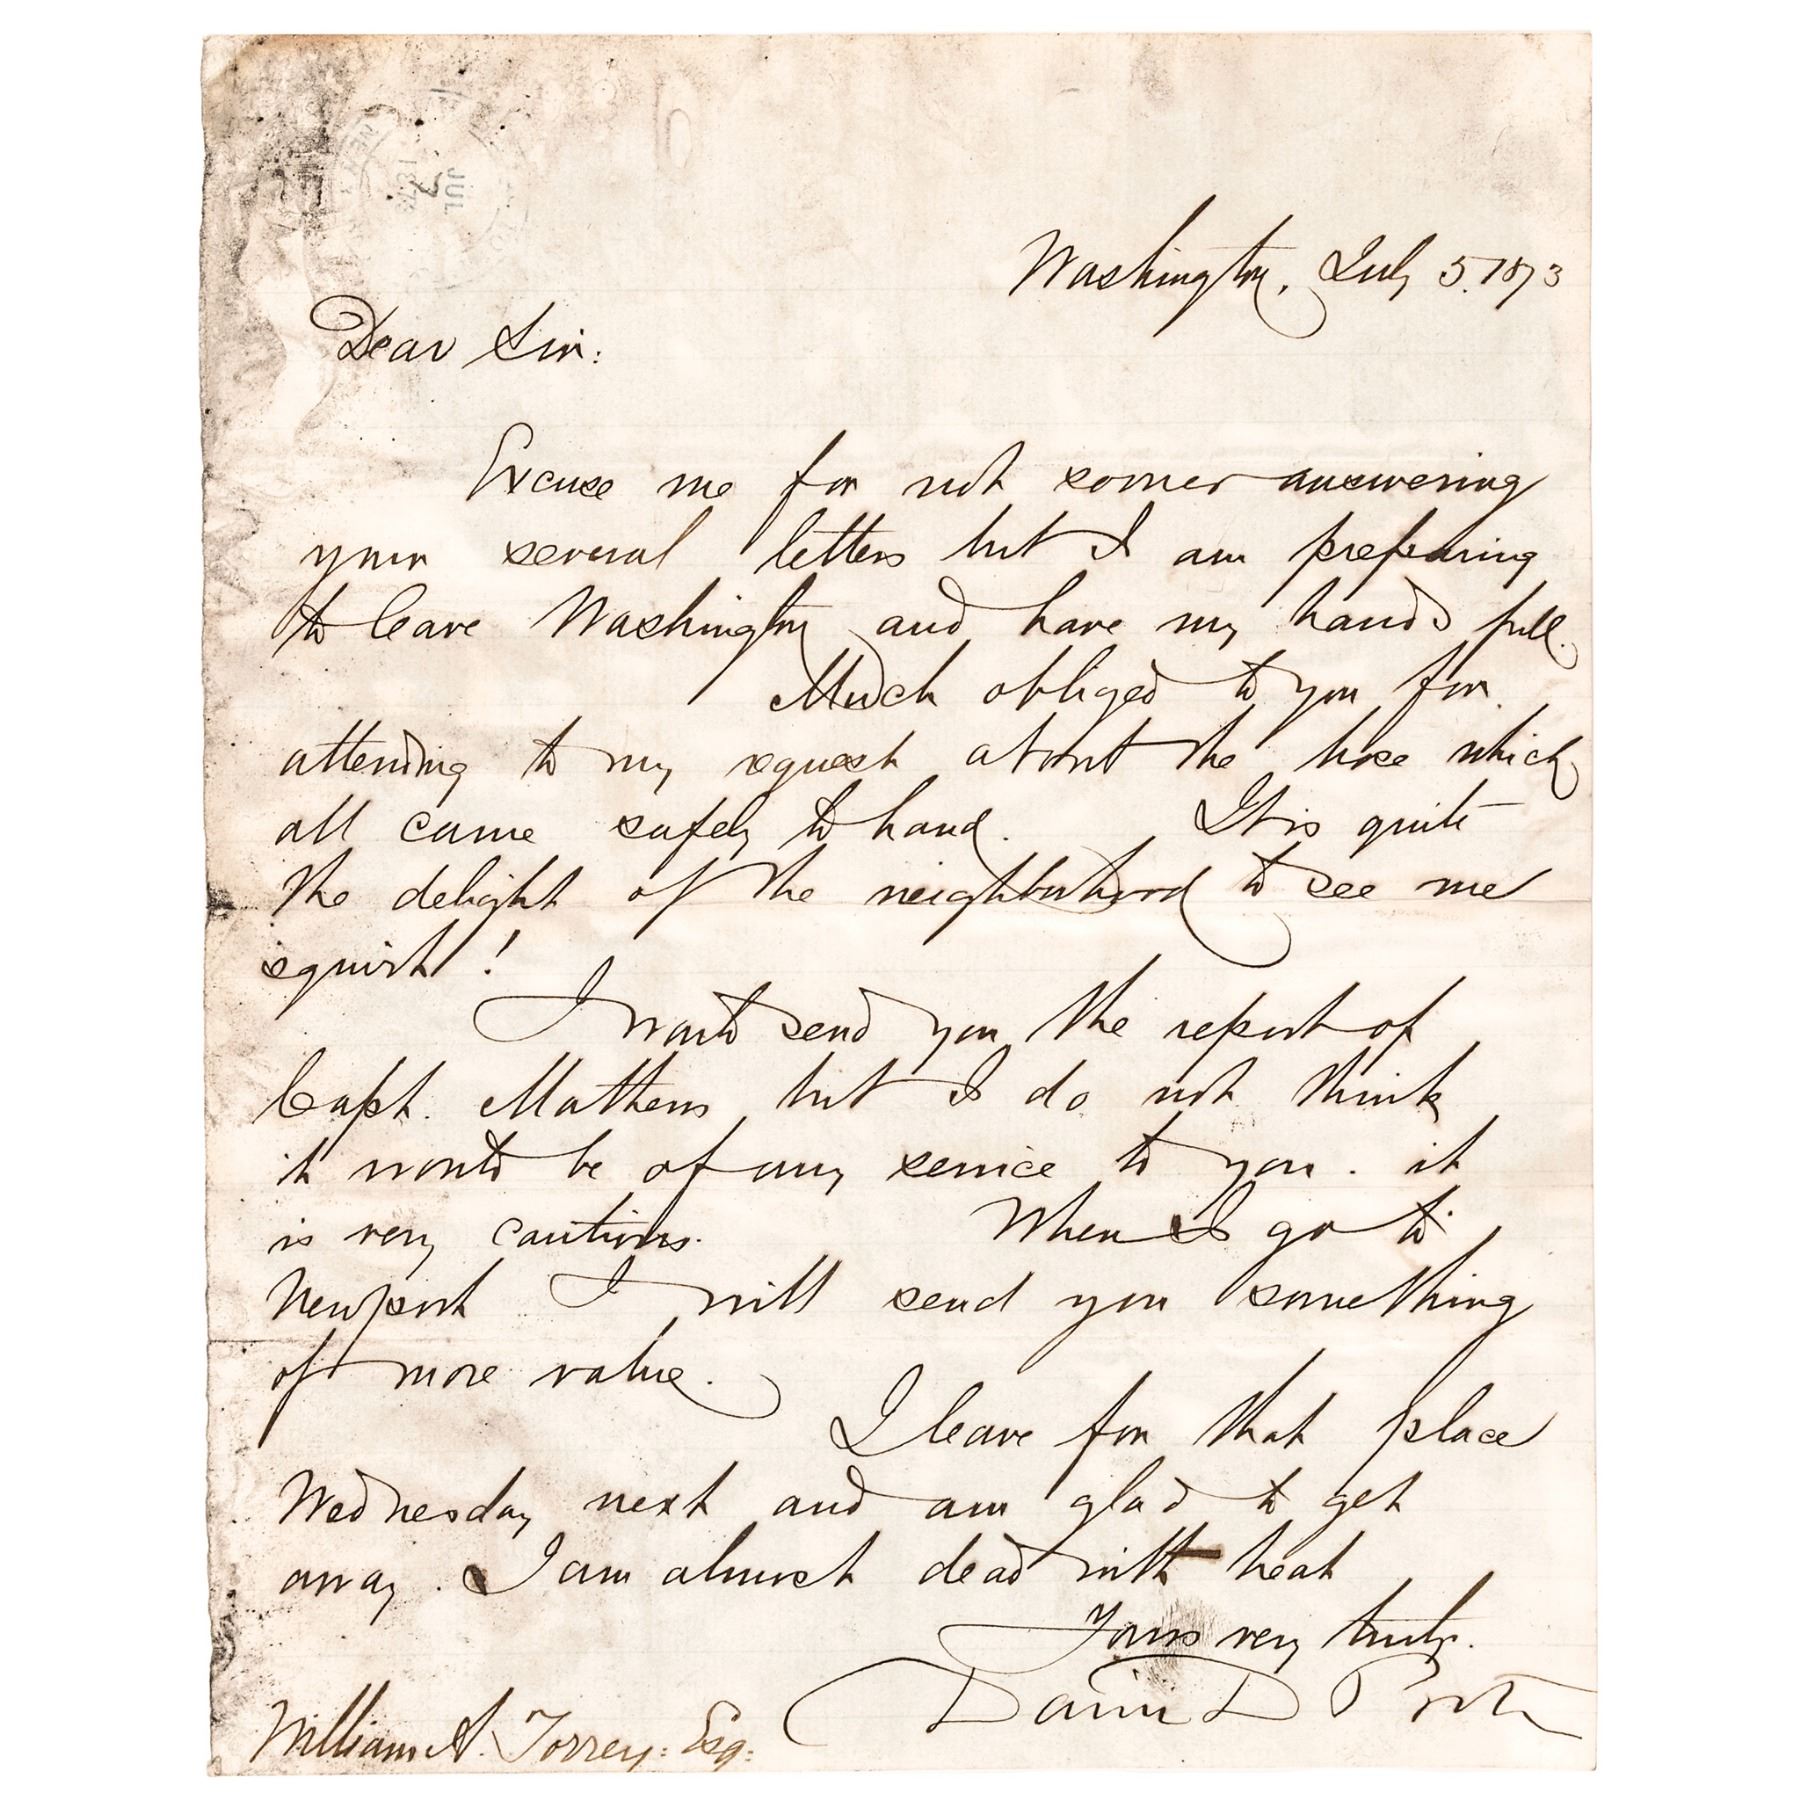 JUL
7
1873
Washington, July 5. 1873
Dear Sir:
Excuse me for not sooner answering
your several letters but I am preparing
to leave Washington and have my hands full.
Much obliged to you for
attending to my request about the hose which
all came safely to hand. It is quite
the delight of the neighborhood to see me
squirt!
I would send you the report of
Capt. Mathews but I do not think
it would be of any service to you. it
is very cautious. When I go to
Newport I will send you something
of more value.
I leave for that place
Wednesday next and am glad to get
away. I am almost dead with heat
Yours very truly.
David D Porter
William A. Torrey: Esq: